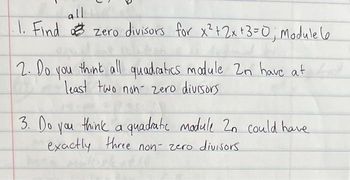 all
1. Find zero divisors for x²+2x+3=0, Module 6
2. Do you think all quadratics module 2n have at
least two non-zero divisors
3. Do you think a quadratic module 2n could have
exactly three non-zero divisors